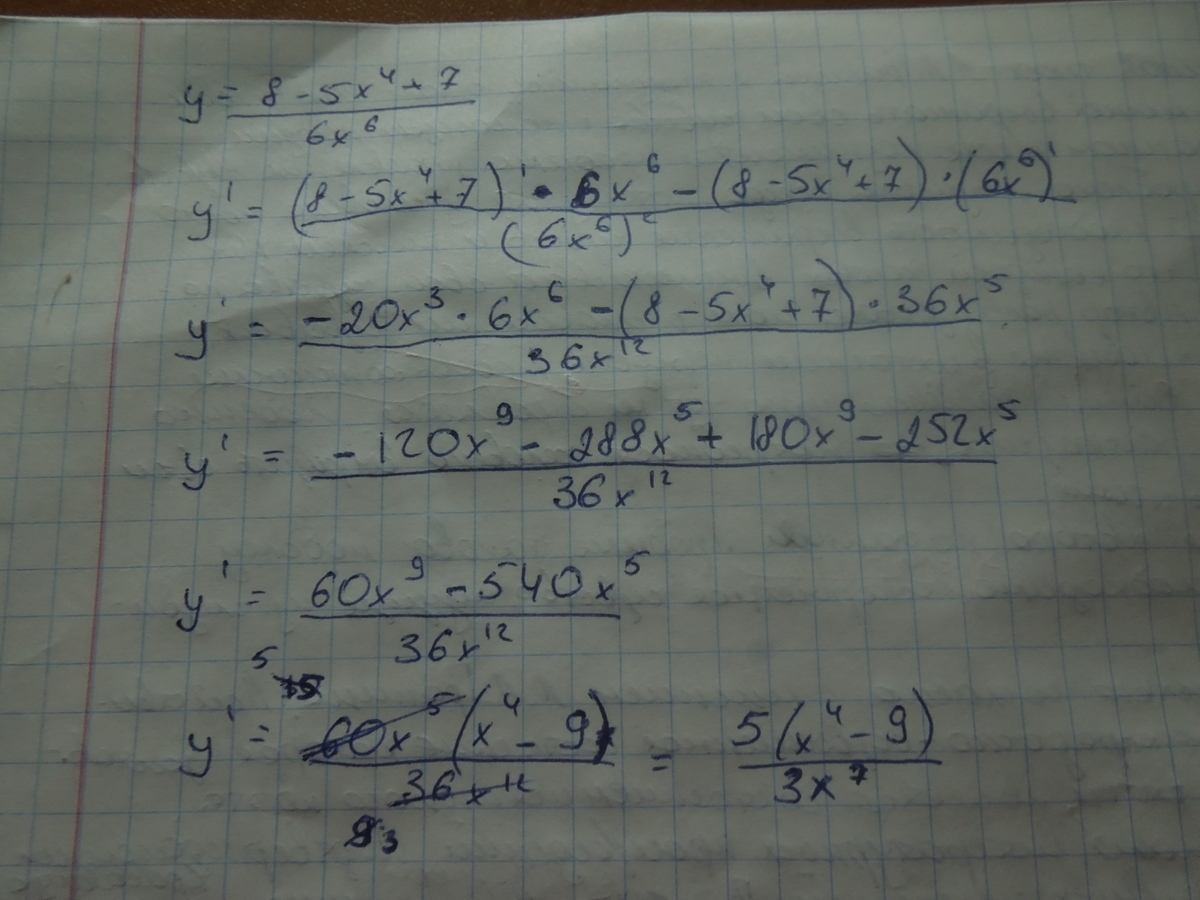 y = (8 - 5x⁴ + 7) / (6x⁶)
y' = ((8 - 5x⁴ + 7)' · 6x⁶ - (8 - 5x⁴ + 7) · (6x⁶)') / (6x⁶)²
y' = (-20x³ · 6x⁶ - (8 - 5x⁴ + 7) · 36x⁵) / (36x¹²)
y' = (-120x⁹ - 288x⁵ + 180x⁹ - 252x⁵) / (36x¹²)
y' = (60x⁹ - 540x⁵) / (36x¹²)
5
y' = (60x⁵(x⁴ - 9)) / (36x¹²) = (5(x⁴ - 9)) / (3x⁷)
3